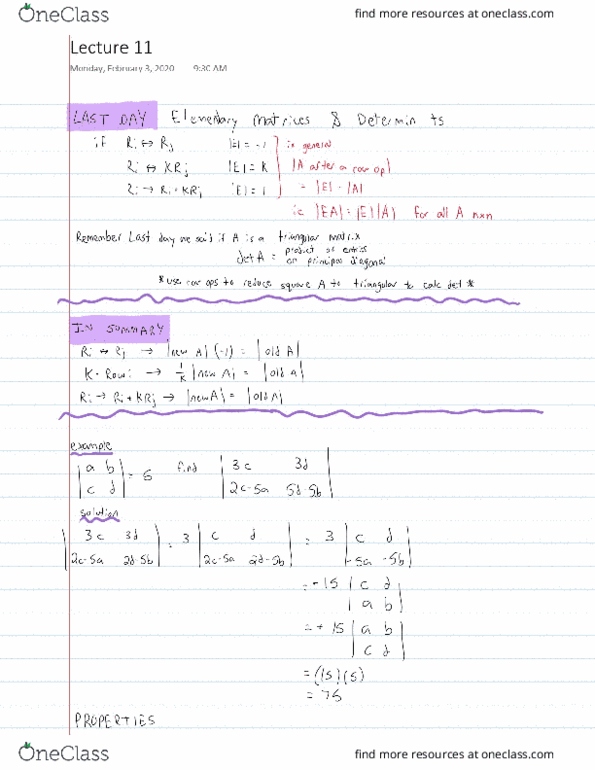 OneClass
find more resources at oneclass.com
Lecture 11
Monday, February 3, 2020 9:30 AM
LAST DAY Elementary Matrices & Determin ts
if Ri ↔ Rj |E| = -1 in general
Ri ↔ KRj |E| = K |A after a row op|
Ri → Ri + KRj |E| = 1 = |E| · |A|
ie |EA| = |E||A| for all A nxn
Remember Last day we said if A is a triangular matrix
det A = product of entries
on principal diagonal
*use row ops to reduce square A to triangular to calc det*
IN SUMMARY
Ri ↔ Rj → |new A| (-1) = |old A|
K · Rowi → 1/K |new A| = |old A|
Ri → Ri + KRj → |new A| = |old A|
example
|a b| = 5 find |3c 3d|
|c d| |2c-5a 5d-5b|
solution
|3c 3d| = 3 |c d| = 3 |c d|
|2c-5a 2d-5b| |2c-5a 2d-5b| |-5a -5b|
= -15 |c d|
|a b|
= +15 |a b|
|c d|
= (15)(5)
= 75
PROPERTIES
OneClass
find more resources at oneclass.com